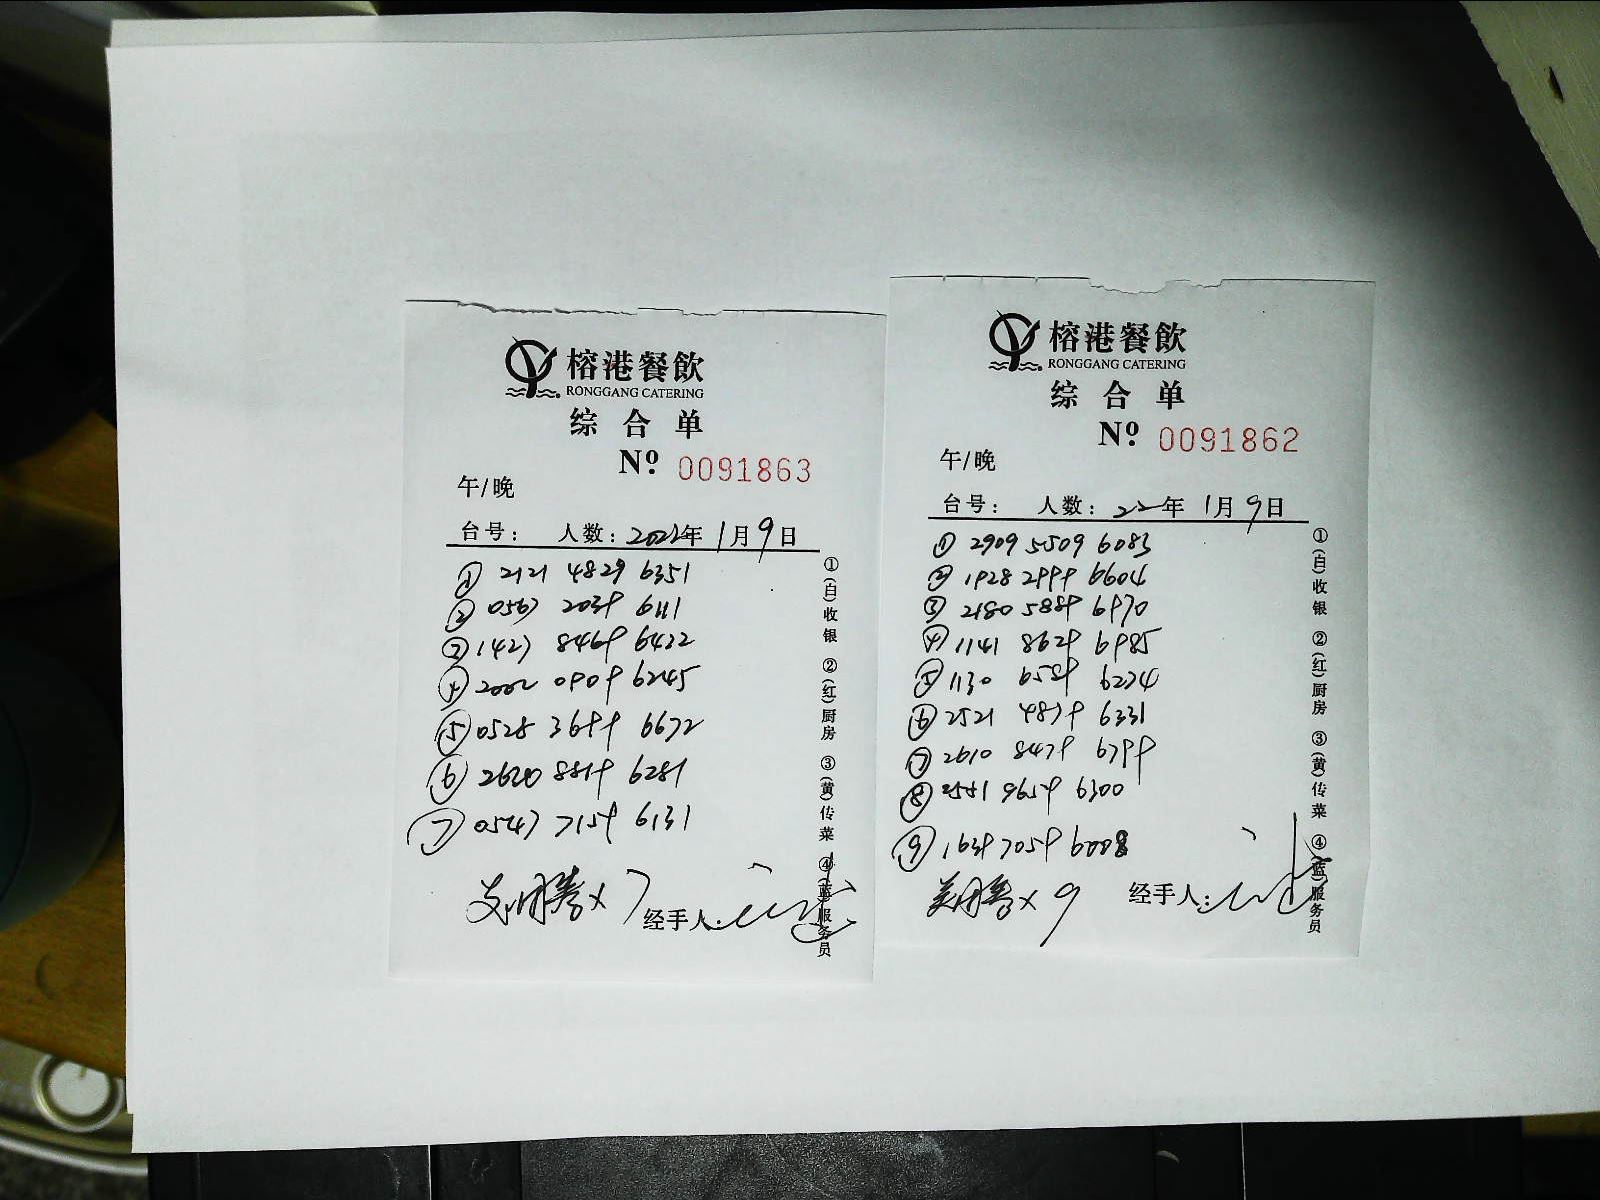 榕港餐飲
RONGGANG CATERING
综合单
Nº 0091863
午/晚
台号: 人数: 2022年 1月9日
① 2121 4829 6351
② 0567 2039 6111
③ 1427 8469 6432
④ 2002 0909 6245
⑤ 0528 3699 6672
⑥ 2620 8819 6281
⑦ 0547 7159 6131
×7
经手人:
①(白)收银 ②(红)厨房 ③(黄)传菜 ④(蓝)服务员
榕港餐飲
RONGGANG CATERING
综合单
Nº 0091862
午/晚
台号: 人数: 22年 1月9日
① 2909 5509 6083
② 1928 2999 6604
③ 2180 5889 6970
④ 1141 8629 6985
⑤ 1130 6589 6274
⑥ 2521 4879 6331
⑦ 2610 8479 6799
⑧ 2551 9659 6300
⑨ 1639 7059 6008
×9
经手人:
①(白)收银 ②(红)厨房 ③(黄)传菜 ④(蓝)服务员